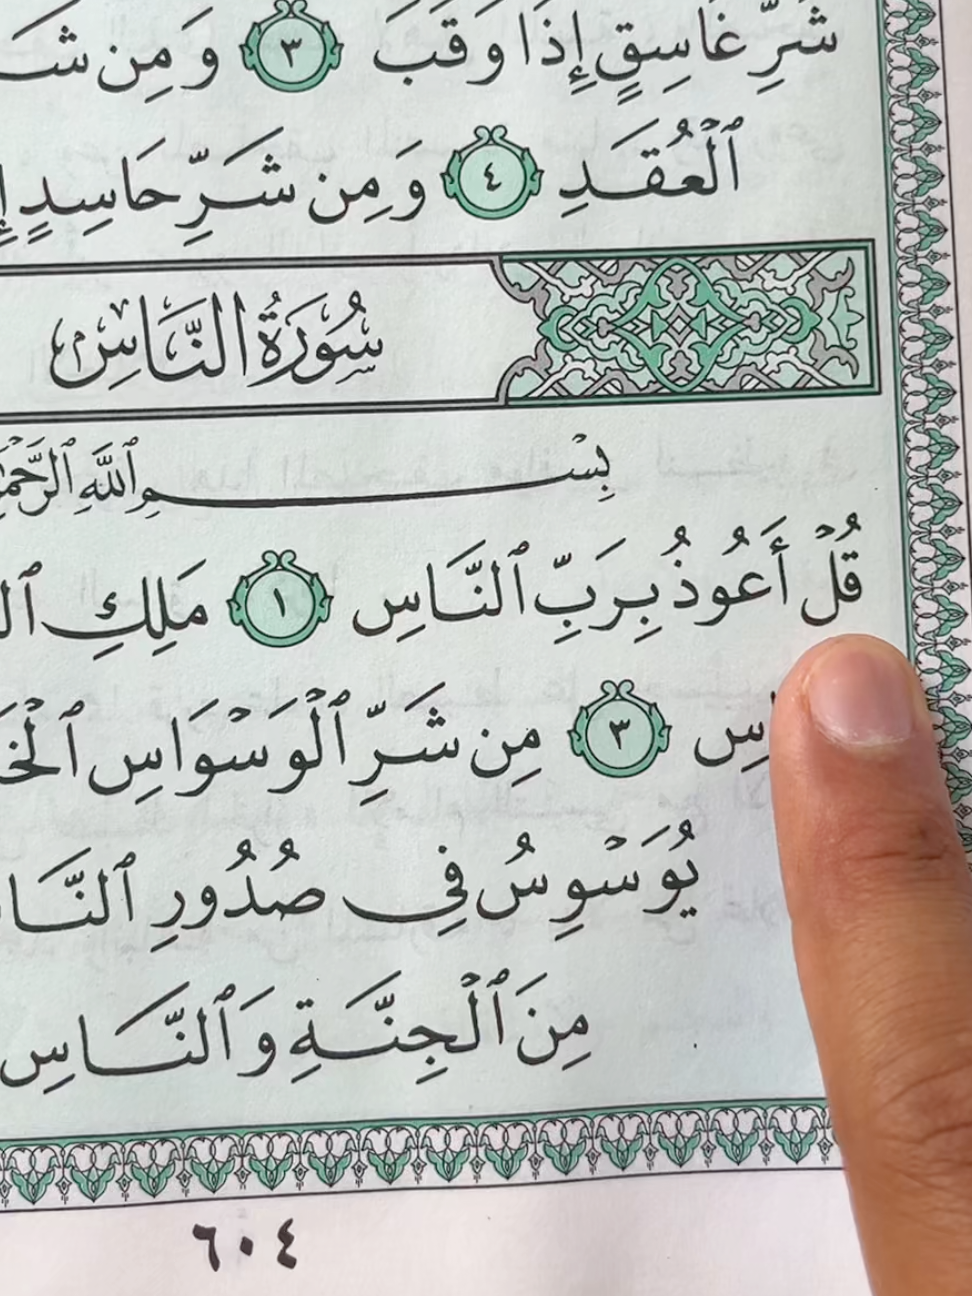 شَرِّ غَاسِقٍ إِذَا وَقَبَ ٣ وَمِن
ٱلْعُقَدِ ٤ وَمِن شَرِّ حَاسِدٍ
سُورَةُ النَّاسِ
بِسْمِ ٱللَّهِ
قُلْ أَعُوذُ بِرَبِّ ٱلنَّاسِ ١ مَلِكِ
٣ مِن شَرِّ ٱلْوَسْوَاسِ
يُوَسْوِسُ فِي صُدُورِ
مِنَ ٱلْجِنَّةِ وَٱلنَّاسِ
٦٠٤